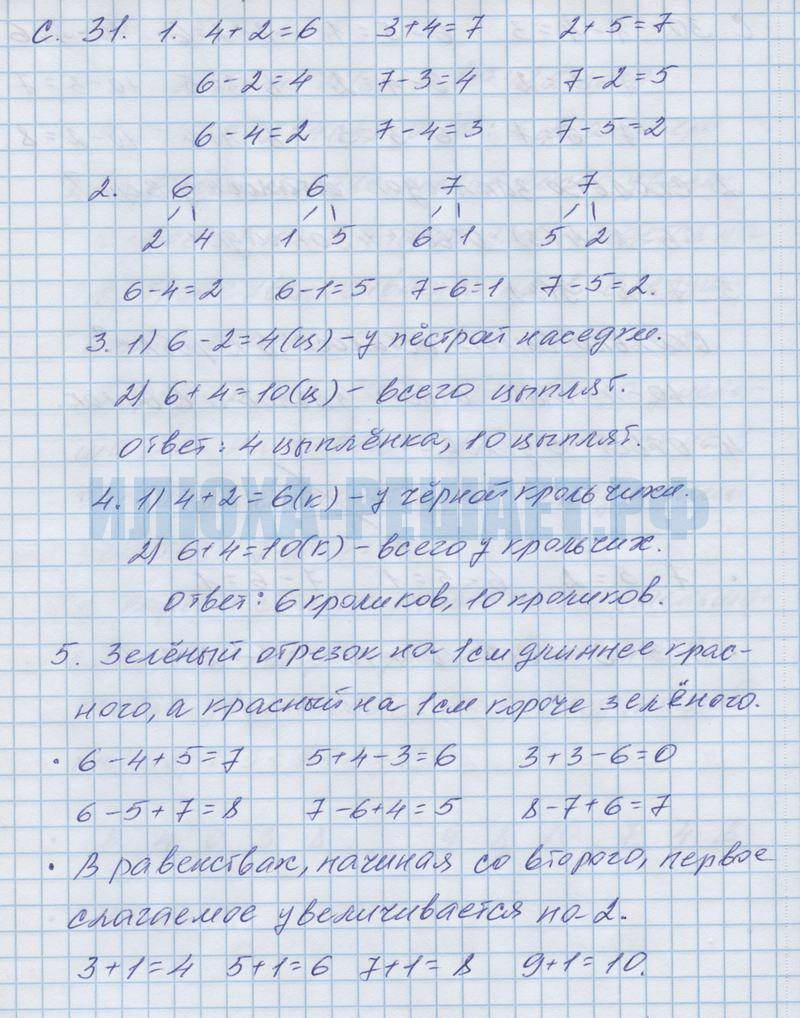 С. 31. 1. 4+2=6 3+4=7 2+5=7
6-2=4 7-3=4 7-2=5
6-4=2 7-4=3 7-5=2
2. 6 6 7 7
2 4 1 5 6 1 5 2
6-4=2 6-1=5 7-6=1 7-5=2.
3. 1) 6-2=4(ц) - у пёстрой наседки.
2) 6+4=10(ц) - всего цыплят.
Ответ: 4 цыплёнка, 10 цыплят.
ИЛЮХА-РЕШАЕТ.РФ
4. 1) 4+2=6(к) - у чёрной крольчихи.
2) 6+4=10(к) - всего у крольчих.
Ответ: 6 кроликов, 10 кроликов.
5. Зелёный отрезок на 1см длиннее крас-
ного, а красный на 1см короче зелёного.
• 6-4+5=7 5+4-3=6 3+3-6=0
6-5+7=8 7-6+4=5 8-7+6=7
• В равенствах, начиная со второго, первое
слагаемое увеличивается на 2.
3+1=4 5+1=6 7+1=8 9+1=10.